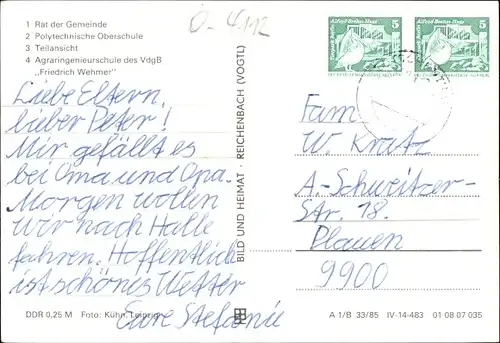 1 Rat der Gemeinde
2 Polytechnische Oberschule
3 Teilansicht
4 Agraringenieurschule des VdgB
„Friedrich Wehmer"
Ö-4112
Liebe Eltern,
lieber Peter!
Mir gefällt es
bei Oma und Opa.
Morgen wollen
wir nach Halle
fahren. Hoffentlich
ist schönes Wetter
Eure Stefanie
DDR 0,25 M Foto: Kühn, Leipzig
BILD UND HEIMAT · REICHENBACH (VOGTL)
5
Alfred-Brehm-Haus
Tierpark Berlin
5
Alfred-Brehm-Haus
Tierpark Berlin
Fam
W. Kratz
A.-Schweitzer-
Str. 18.
Plauen
9900
A 1/B 33/85 IV-14-483 01 08 07 035